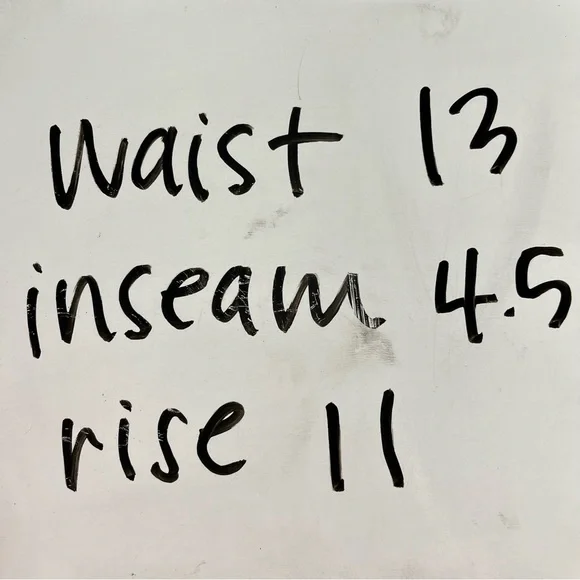 waist 13
inseam 4.5
rise 11